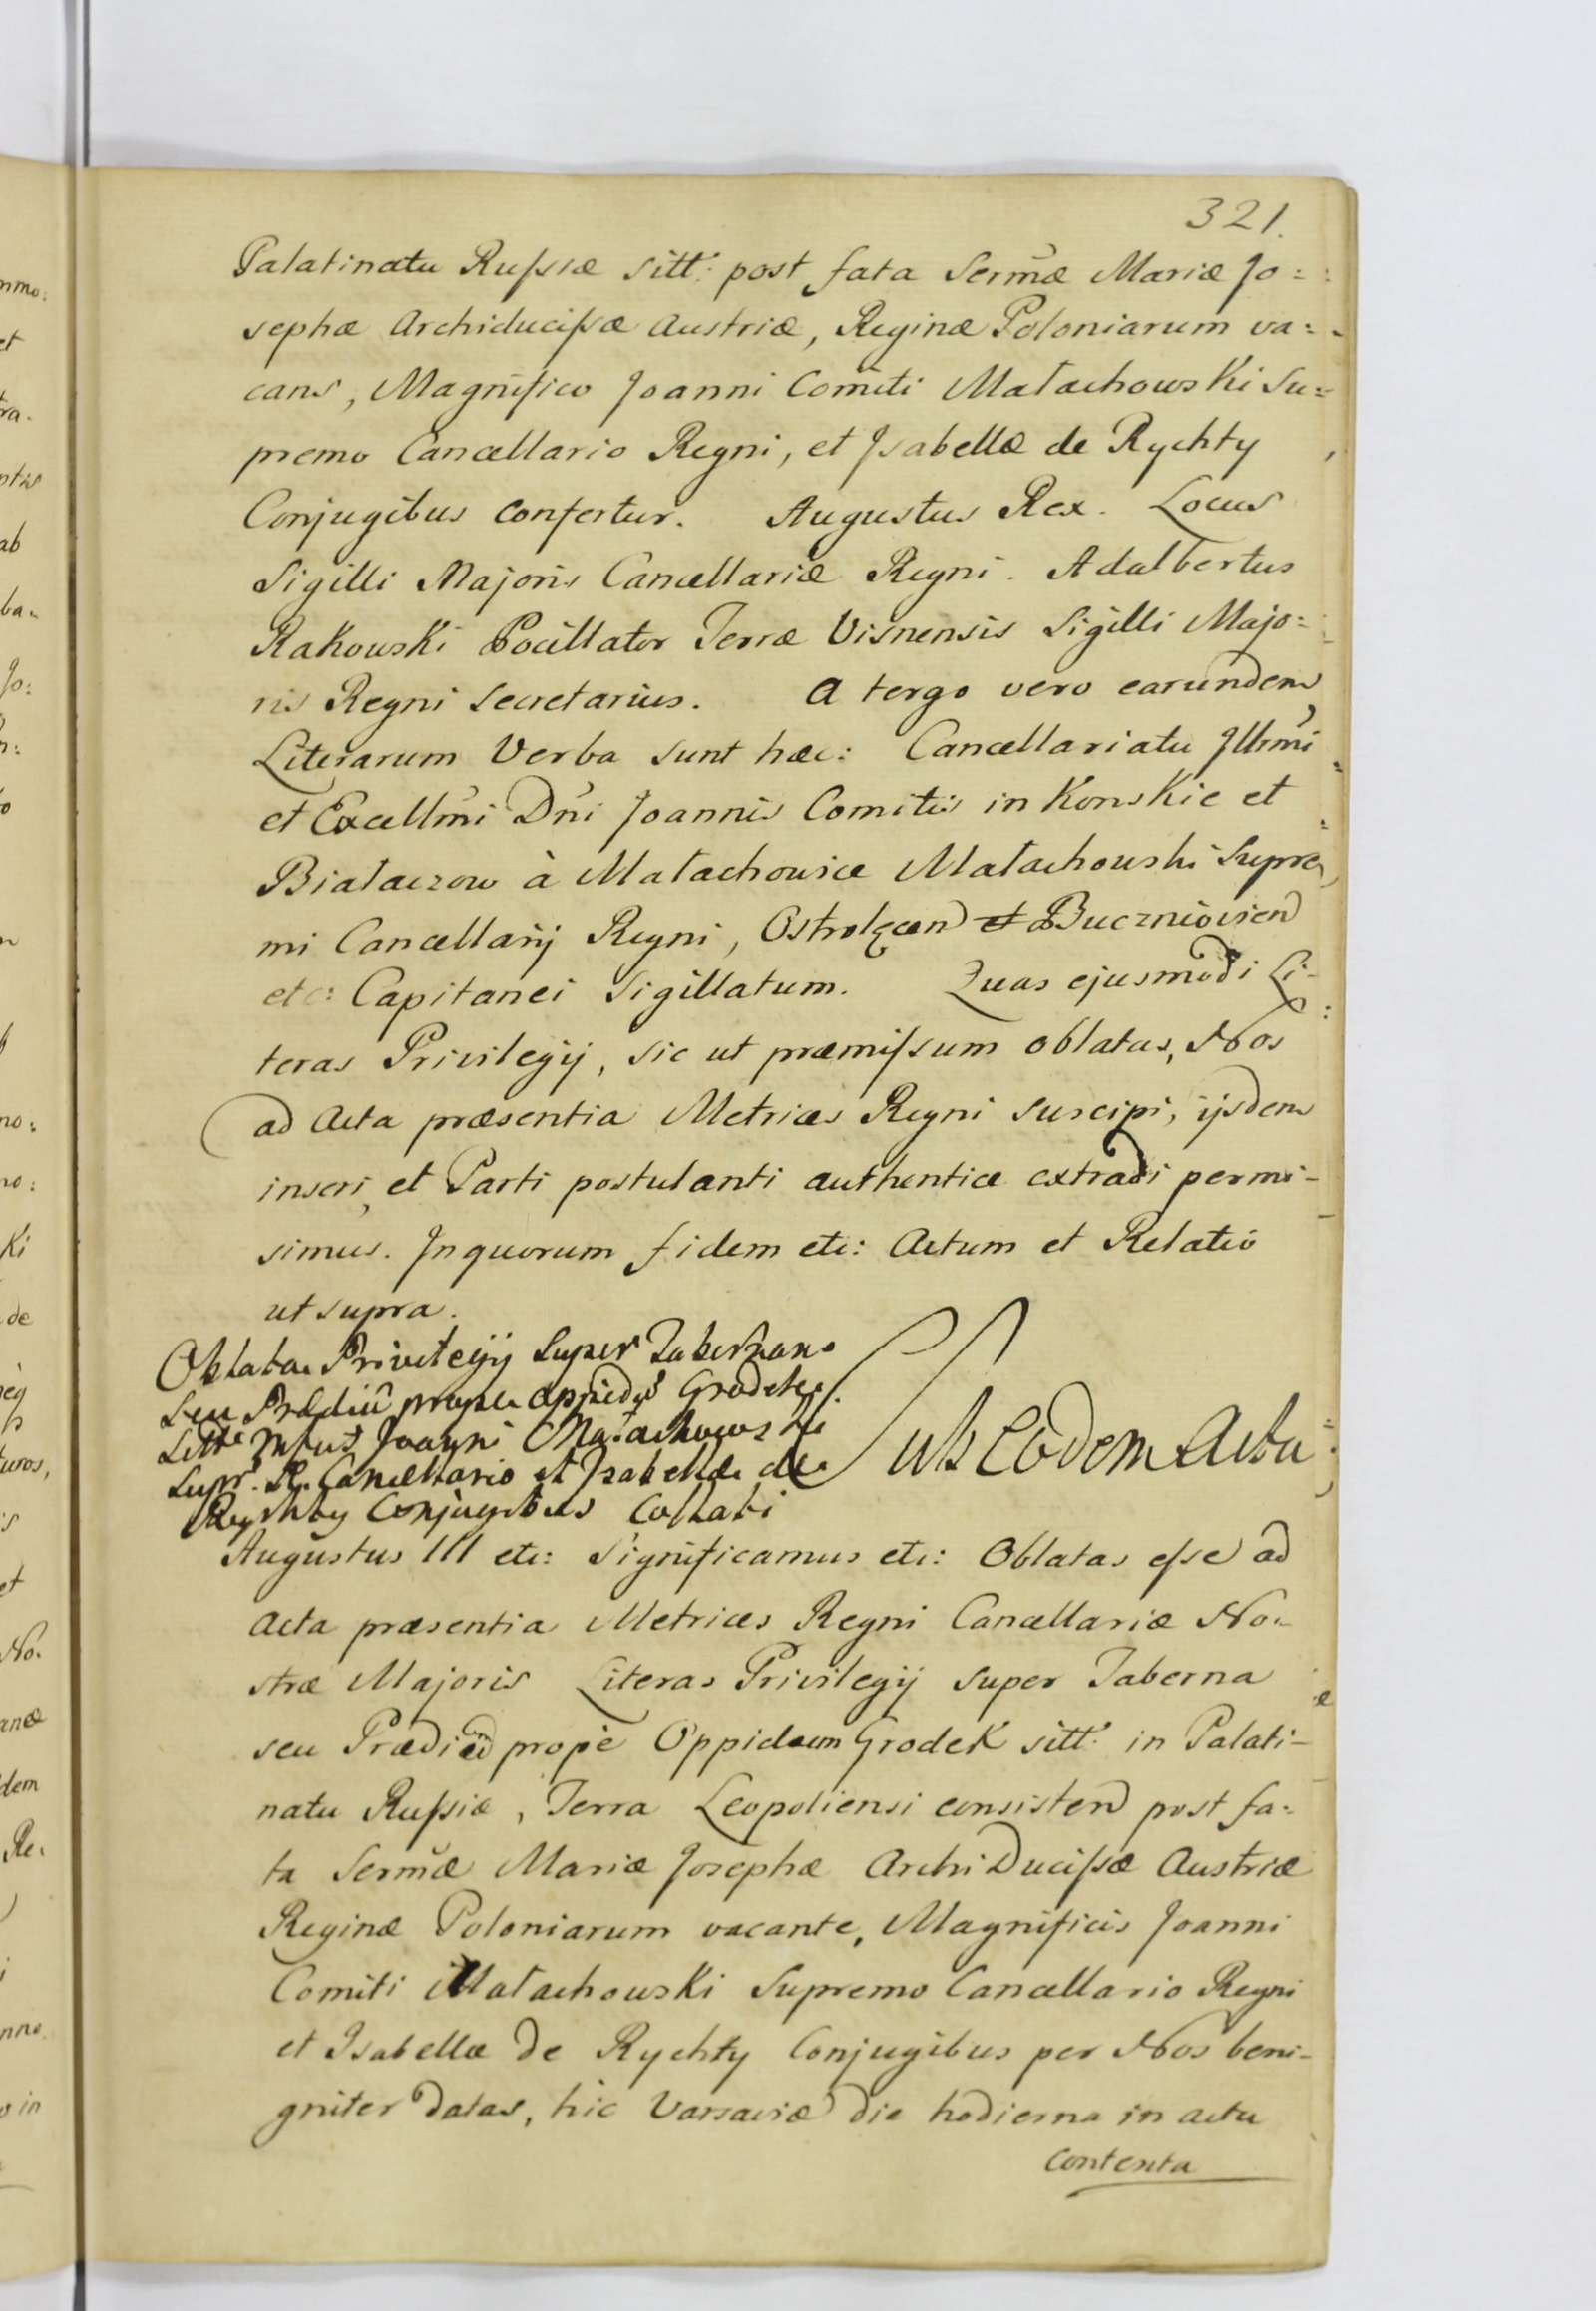 321.
Palatinatu Russiæ sitt: post fata Sermæ Mariæ Jo=
sephæ Archiducissæ Austriæ, Reginæ Poloniarum va=
cans, Magnifico Joanni Comiti Małachowski Su=
premo Cancellario Regni, et Jsabellæ de Rychty
Conjugibus confertur. Augustus Rex. Locus
Sigilli Majoris Cancellariæ Regni. Adalbertus
Rakowski Pocillator Terræ Visnensis Sigilli Majo=
ris Regni Secretarius. A tergo vero earundem
Literarum Verba sunt hæc: Cancellariatu Jllrmi
et Excellmi Dni Joannis Comitis in Konskie et
Białaczow à Małachowice Małachowski Supre
mi Cancellarij Regni, Ostrołęcen et Buczniovien
etc: Capitanei Sigillatum. Quas ejusmodi Li-
teras Privilegij, sic ut præmissum oblatas, Nos
ad Acta præsentia Metrices Regni suscipi, ijsdem
inseri, et Parti postulanti authentice extradi permi-
simus. Jn quorum fidem etc: Actum et Relatio
ut supra.
Oblata Privilegij Super Tabernam
Seu Prædiu prope oppidu Grodek
Sitt Joanni Małachowski
Supr. R. Cancellario et Jsabellæ de
Rychty Conjugibus Collati
Sub Eodem Actu
Augustus III etc: Significamus etc: Oblatas esse ad
Acta præsentia Metrices Regni Cancellariæ No-
stræ Majoris Literas Privilegij super Taberna
seu prope Oppidum Grodek sitt: in Palati-
natu Russiæ, Terra Leopoliensi consisten post fa-
ta Sermæ Mariæ Josephæ ArchiDucissæ Austriæ
Reginæ Poloniarum vacante, Magnificis Joanni
Comiti Małachowski Supremo Cancellario Regni
et Jsabellæ de Rychty Conjugibus per Nos beni-
gniter datas, hic Varsaviæ die hodierna in actu
contenta